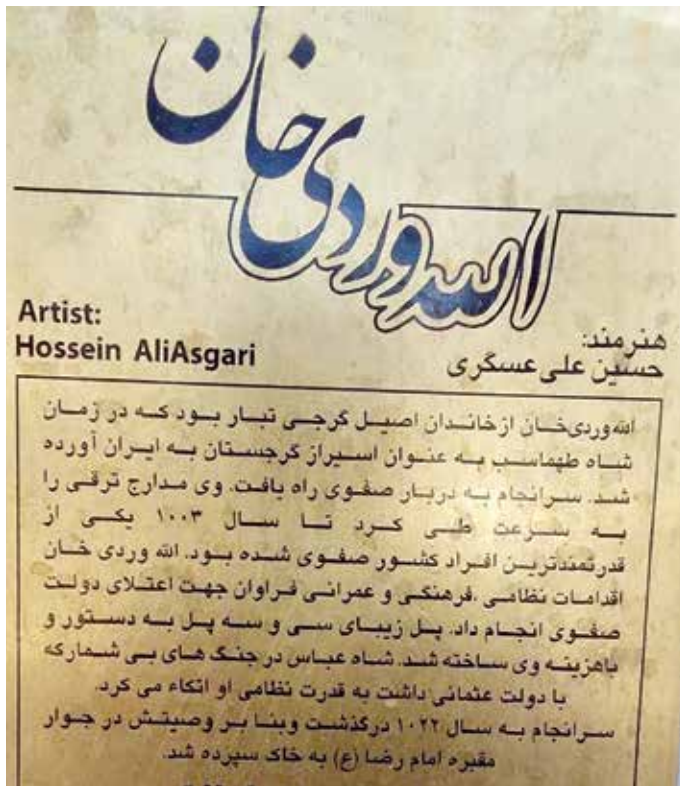 الله وردی خان
هنرمند:
حسین علی عسگری
Artist:
Hossein AliAsgari
الله‌وردی‌خان ازخاندان اصیل گرجی تبار بود که در زمان
شاه طهماسب به عنوان اسیراز گرجستان به ایران آورده
شد. سرانجام به دربار صفوی راه یافت. وی مدارج ترقی را
به سرعت طی کرد تا سال ۱۰۰۳ یکی از
قدرتمندترین افراد کشور صفوی شده بود. الله وردی خان
اقدامات نظامی ،فرهنگی و عمرانی فراوان جهت اعتلای دولت
صفوی انجام داد. پل زیبای سی و سه پل به دستور و
باهزینه وی ساخته شد. شاه عباس در جنگ های بی شمارکه
با دولت عثمانی داشت به قدرت نظامی او اتکاء می کرد.
سرانجام به سال ۱۰۲۲ درگذشت وبنا بر وصیتش در جوار
مقبره امام رضا (ع) به خاک سپرده شد.